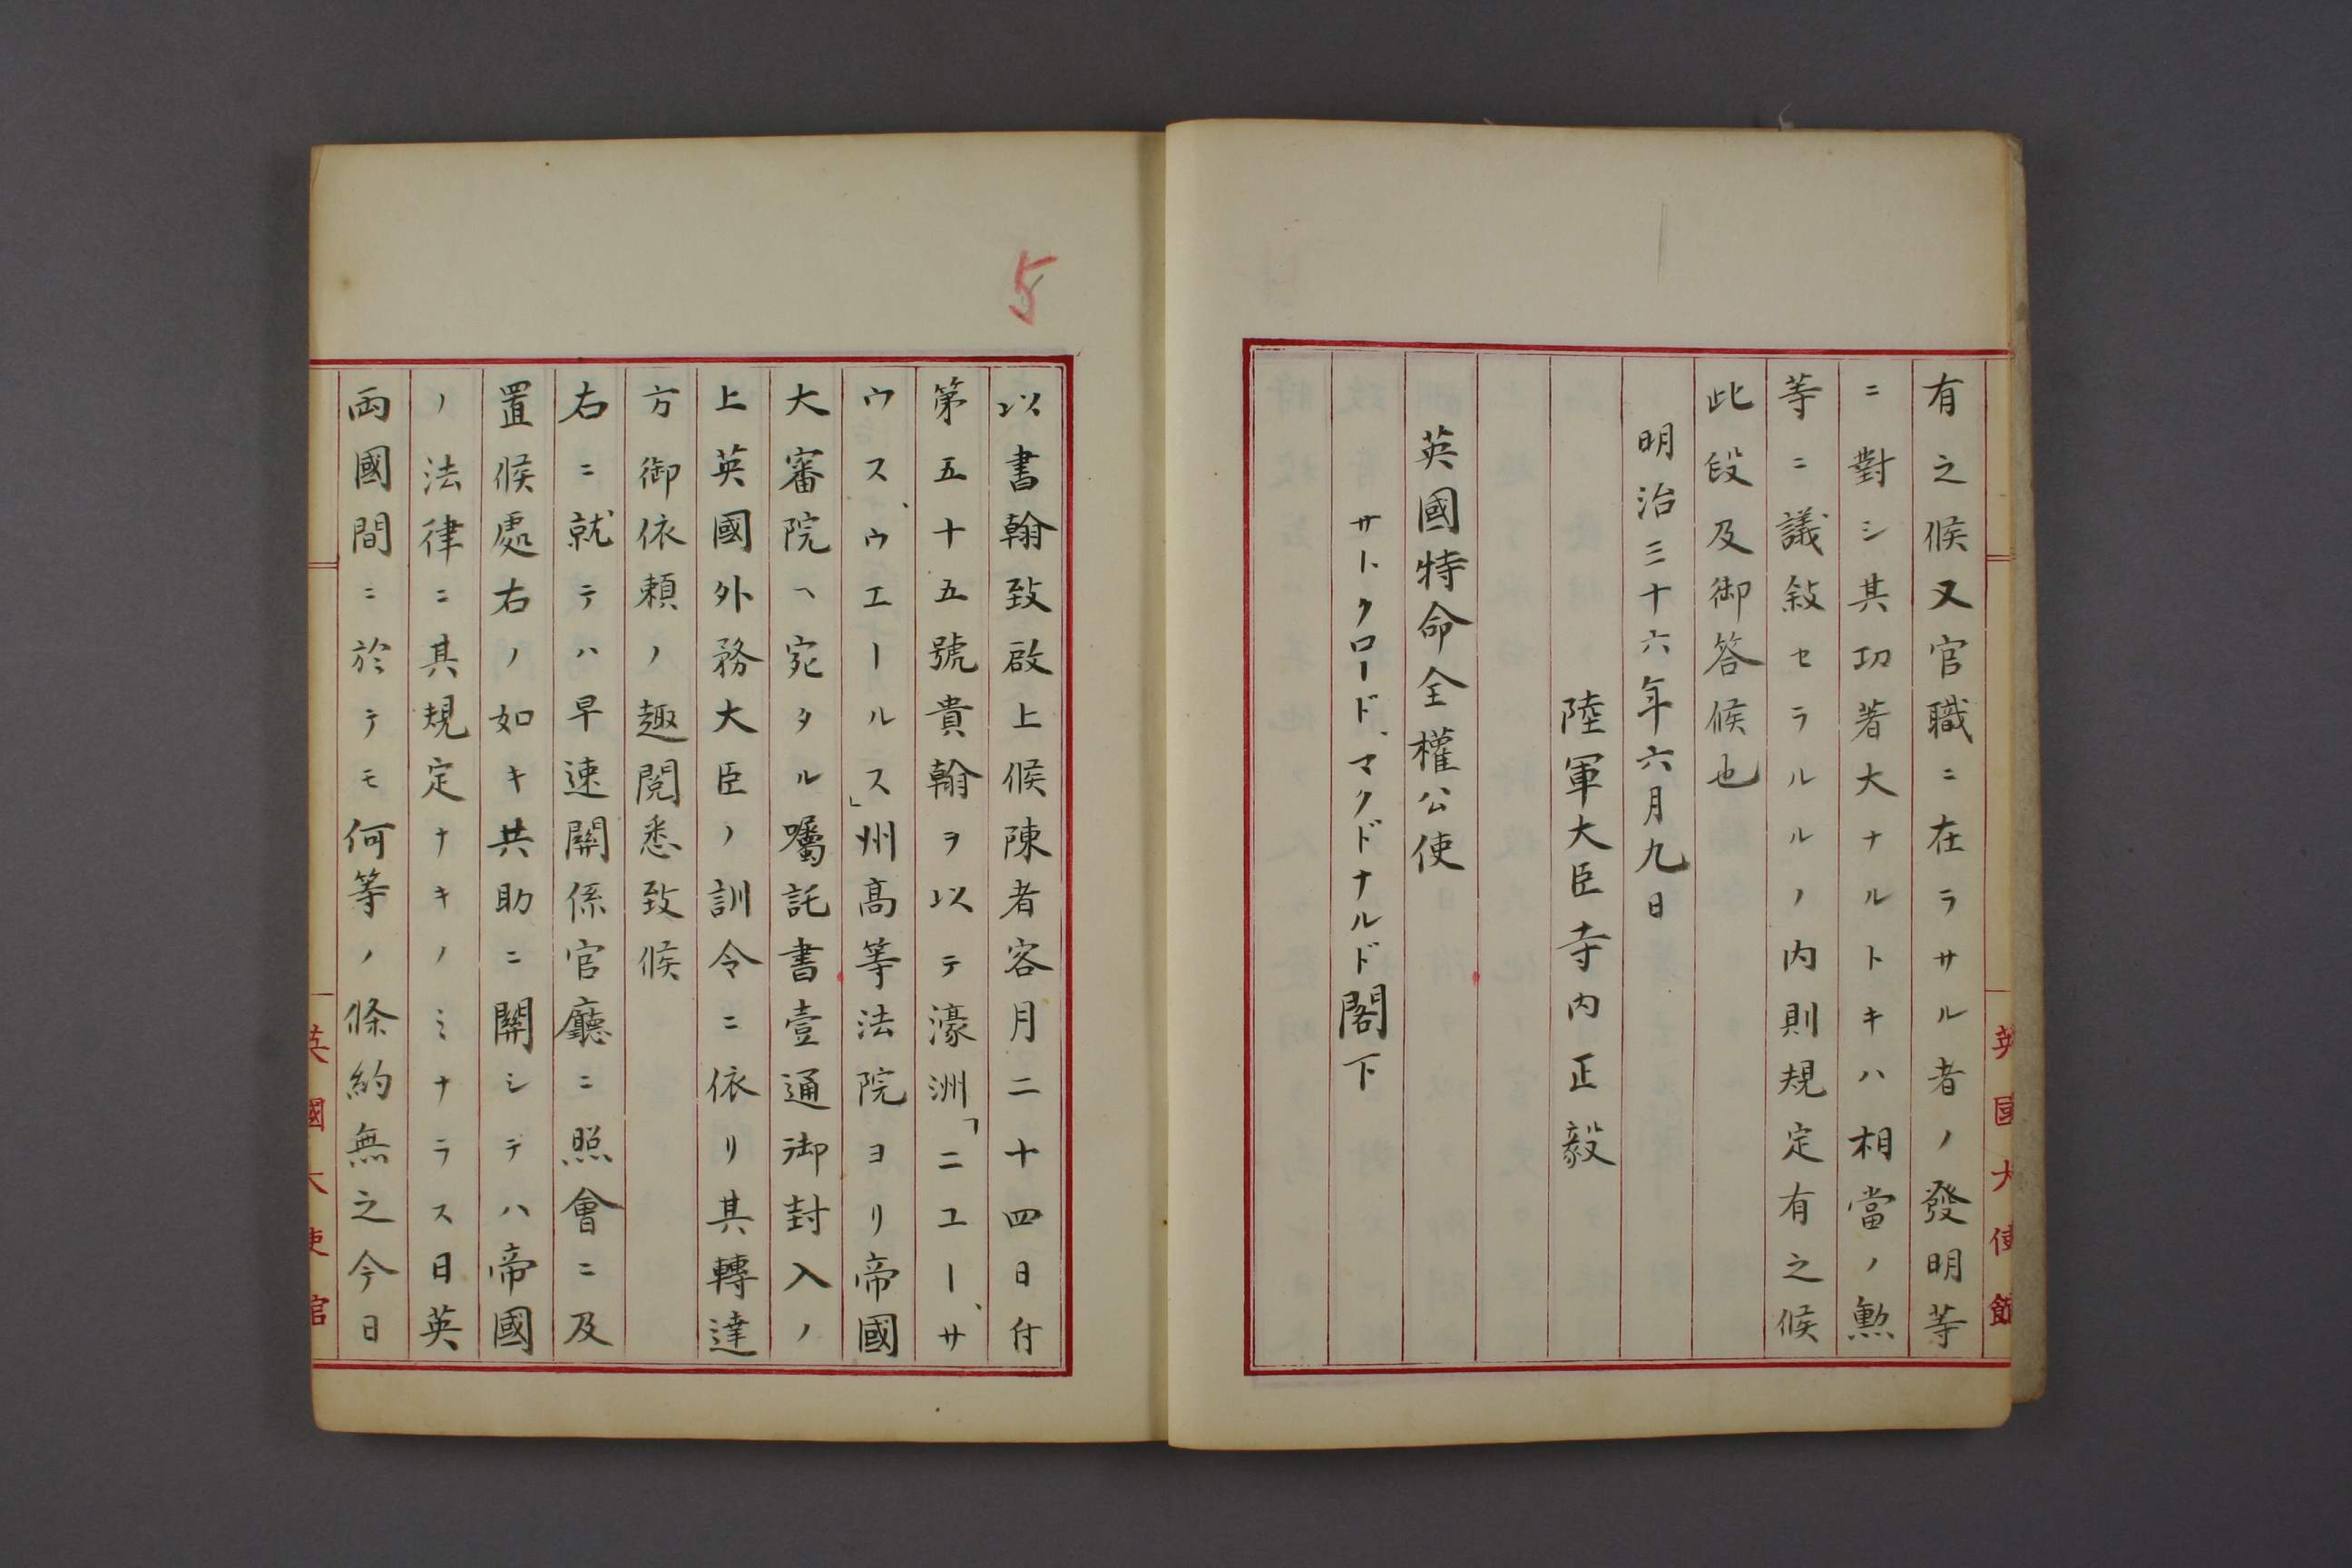 有之候又官職ニ在ラサル者ノ發明等
ニ對シ其功著大ナルトキハ相當ノ勲
等ニ議敍セラルルノ内則規定有之候
此段及御答候也
明治三十六年六月九日
陸軍大臣寺内正毅
英國特命全權公使
サト、クロード、マクドナルド閣下
英國大使館
5
以書翰致啟上候陳者客月二十四日付
第五十五號貴翰ヲ以テ濠洲「ニユー、サ
ウス、ウエールス」州高等法院ヨリ帝國
大審院ヘ宛タル囑託書壹通御封入ノ
上英國外務大臣ノ訓令ニ依リ其轉達
方御依頼ノ趣閲悉致候
右ニ就テハ早速關係官廳ニ照會ニ及
置候處右ノ如キ共助ニ關シテハ帝國
ノ法律ニ其規定ナキノミナラス日英
両國間ニ於テモ何等ノ條約無之今日
英國大使館